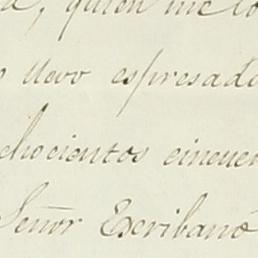 , quien me lo
llevo espresado
chocientos cincuen
Señor Escribano